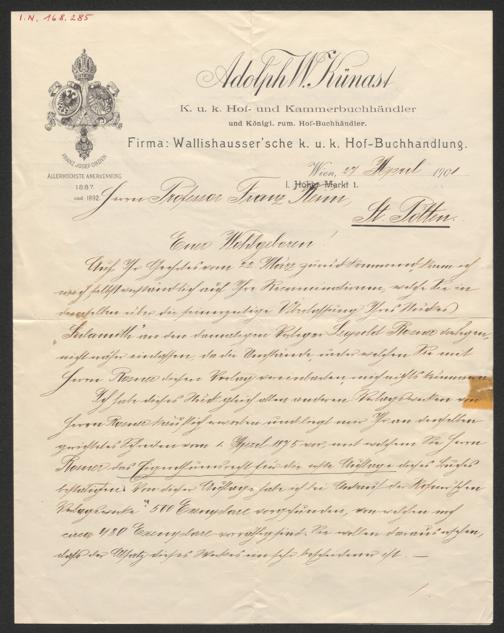 I.N. 168.285
Adolph W. Künast
K. u. k. Hof- und Kammerbuchhändler
und Königl. rum. Hof-Buchhändler.
Firma: Wallishausser'sche k. u. k. Hof-Buchhandlung.
FRANZ JOSEF-ORDEN
ALLERHÖCHSTE ANERKENNUNG
1887
und 1892
Wien, 27 April 1901
I. Hoher Markt 1.
Herrn Professor Franz
St. Pölten.
Euer Wohlgeboren!
Auf Ihr Geehrtes vom 22 März zurückkommend, kann ich
mich selbstverständlich auf Ihre welche Sie in
demselben über die seinerzeitige Überlassung Ihres Stückes
„Sulamith" an den damaligen Verleger Leopold Rosner darlegen,
nicht näher einlassen, da die Umstände, unter welchen Sie mit
Herrn Rosner diesen Verlag vereinbarten, mich nichts kümmern
Ich habe dieses Stück gleich allen anderen Verlagswerken von
Herrn Rosner käuflich erworben und liegt mir Ihr an denselben
gerichtetes Schreiben vom 1. April 1875 vor, mit welchem Sie Herrn
Rosner das Eigenthumsrecht für die erste Auflage dieses Buches
bestätigen. Von dieser Auflage habe ich bei Ankauf der Rosner'schen
Verlagswerke 500 Exemplare vorgefunden, von welchen noch
circa 480 Exemplare vorräthig sind. Sie wollen daraus ersehen,
dass der Absatz dieses Werkes ein sehr bescheidener ist. —